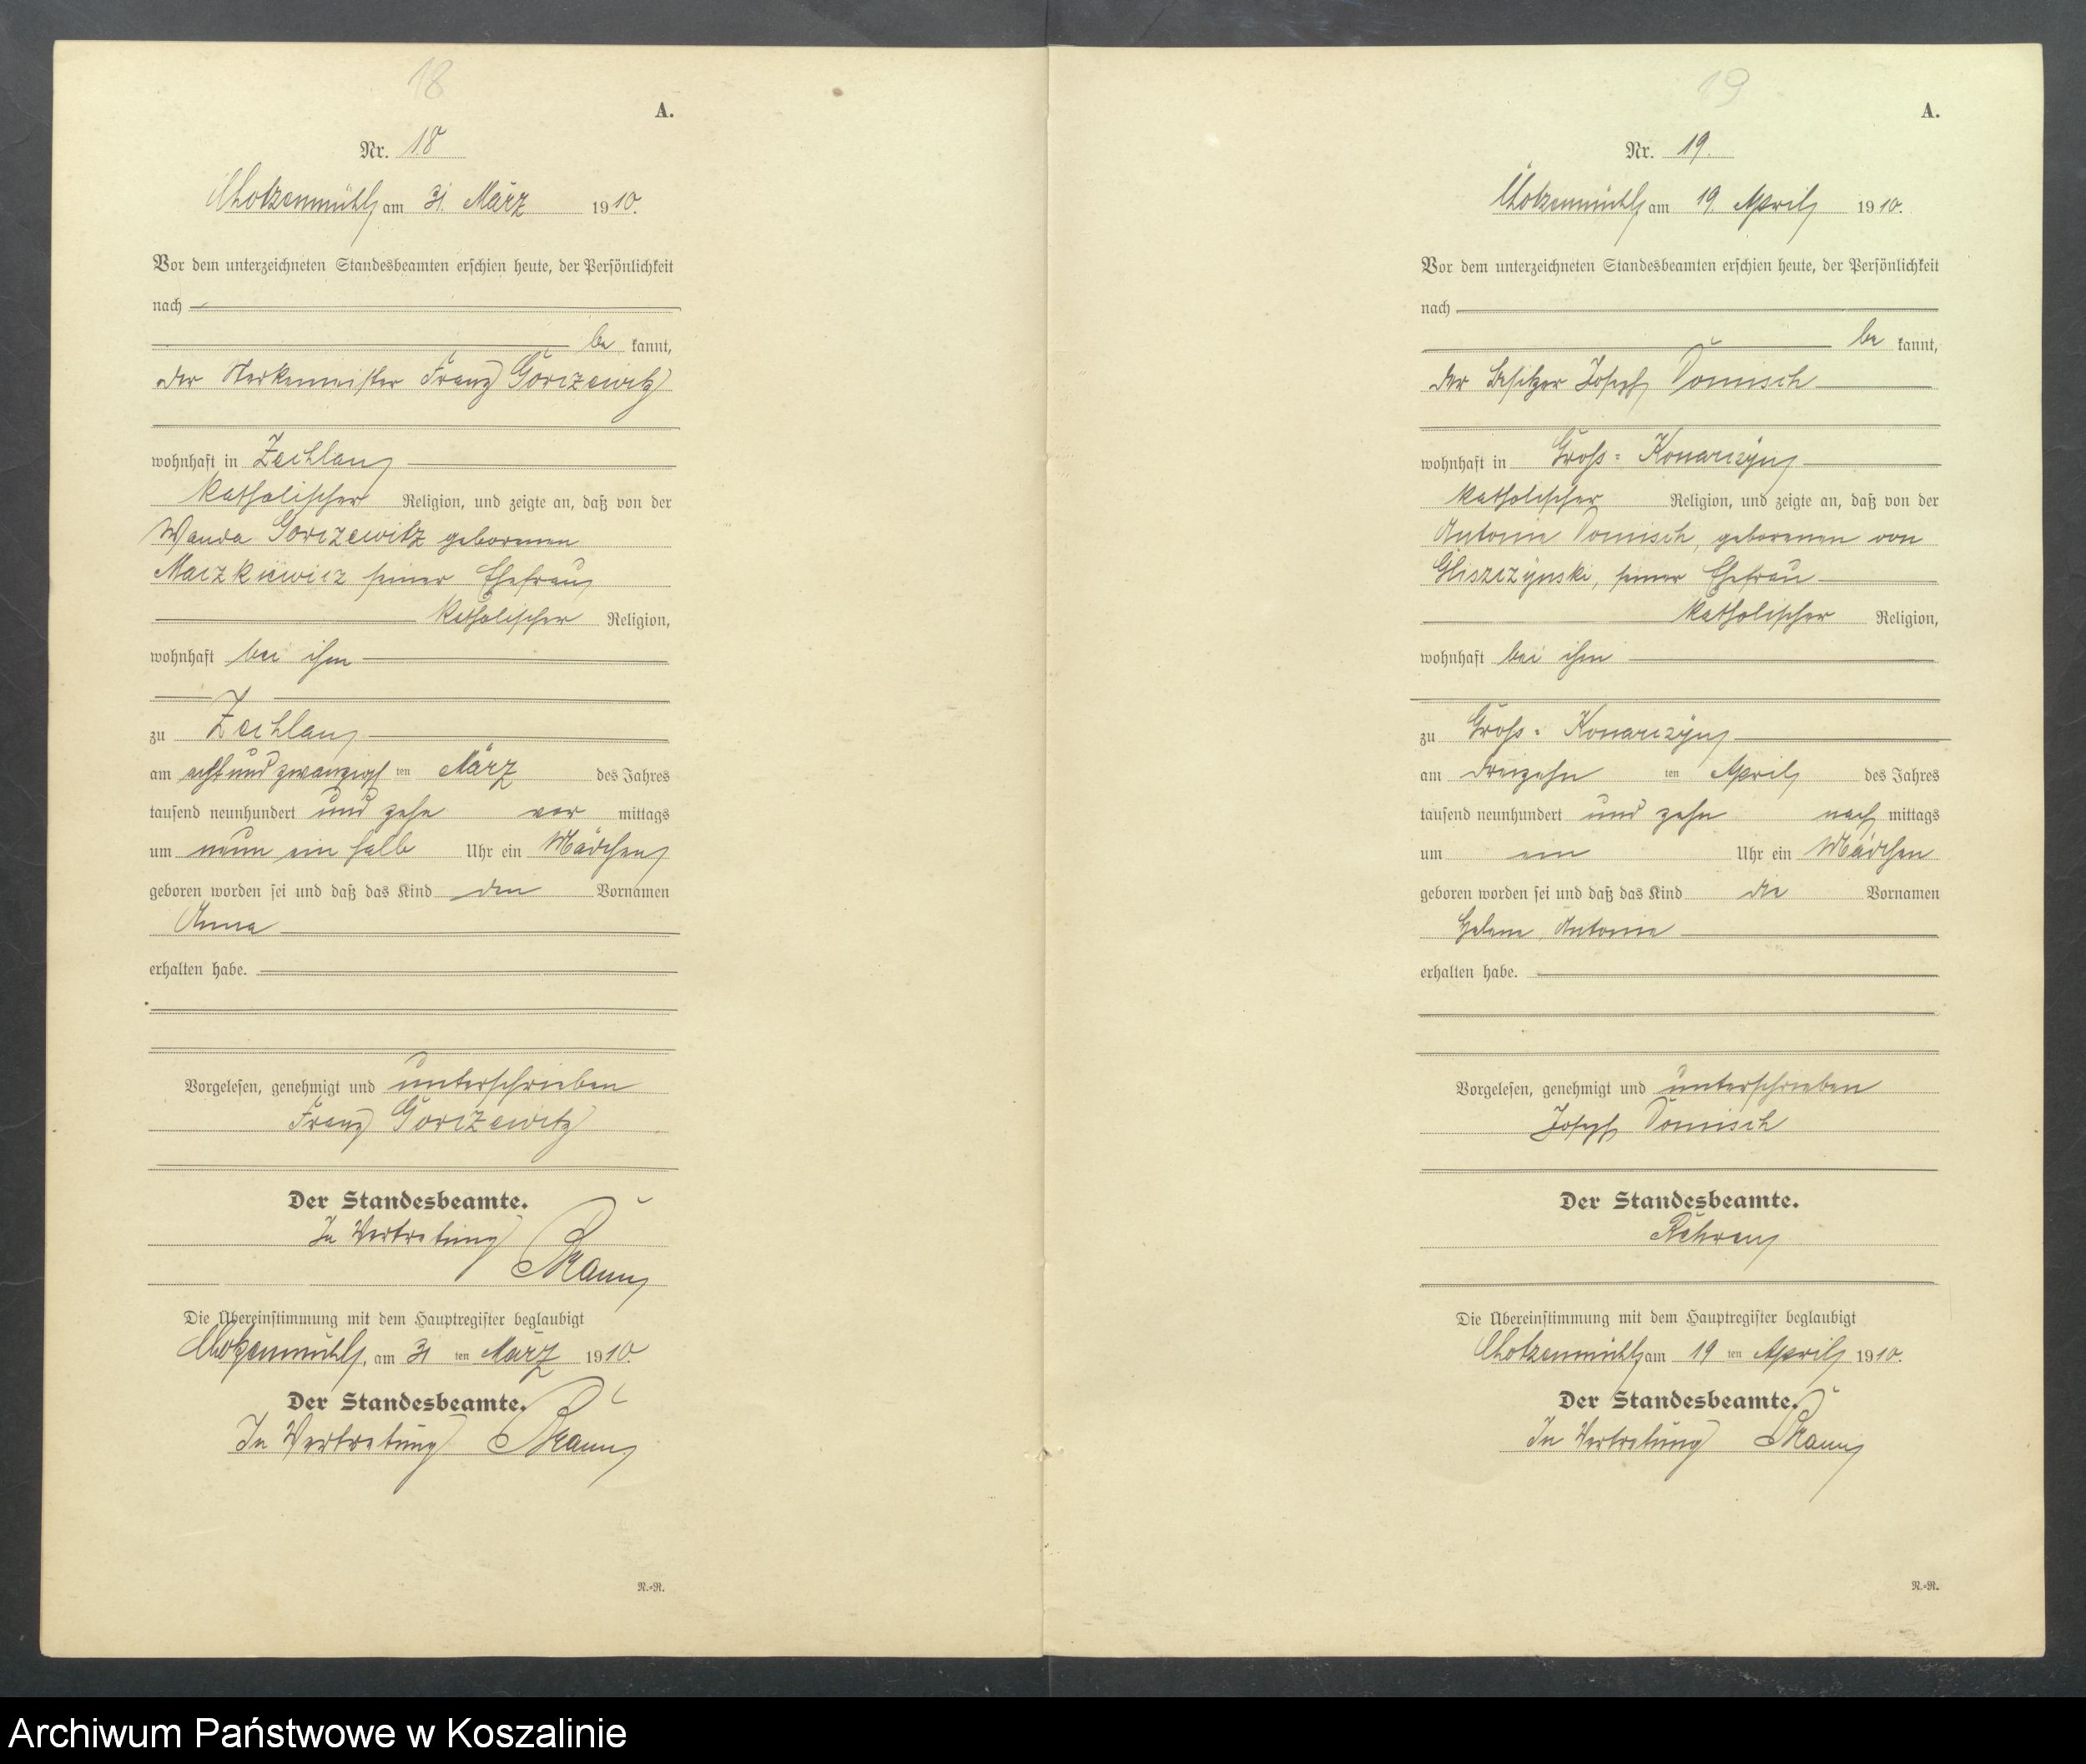 18
A.
Nr. 18
Chotzenmühl am 31. März 1910.
Vor dem unterzeichneten Standesbeamten erschien heute, der Persönlichkeit
nach
be kannt,
der Werkmeister Franz Gorczewitz
wohnhaft in Zechlau
katholischer Religion, und zeigte an, daß von der
Wanda Gorczewitz geborenen
Maczkiewicz seiner Ehefrau
katholischer Religion,
wohnhaft bei ihm
zu Zechlau
am acht und zwanzigsten März des Jahres
tausend neunhundert und zehn vor mittags
um neun ein halb Uhr ein Mädchen
geboren worden sei und daß das Kind den Vornamen
Anna
erhalten habe.
Vorgelesen, genehmigt und unterschrieben
Franz Gorczewitz
Der Standesbeamte.
In Vertretung
Die Übereinstimmung mit dem Hauptregister beglaubigt
Chotzenmühl, am 31 ten März 1910.
Der Standesbeamte.
In Vertretung
N.-R.
19
A.
Nr. 19.
Chotzenmühl am 19. April 1910.
Vor dem unterzeichneten Standesbeamten erschien heute, der Persönlichkeit
nach
be kannt,
der Besitzer Josef Domisch
wohnhaft in Groß-Konarczyn
katholischer Religion, und zeigte an, daß von der
Antonie Domisch, geborenen von
Gliszczynski, seiner Ehefrau
katholischer Religion,
wohnhaft bei ihm
zu Groß-Konarczyn
am dreizehn ten April des Jahres
tausend neunhundert und zehn nach mittags
um ein Uhr ein Mädchen
geboren worden sei und daß das Kind die Vornamen
Helene Antonie
erhalten habe.
Vorgelesen, genehmigt und unterschrieben
Josef Domisch
Der Standesbeamte.
Die Übereinstimmung mit dem Hauptregister beglaubigt
Chotzenmühl am 19 ten April 1910.
Der Standesbeamte.
In Vertretung
N.-R.
Archiwum Państwowe w Koszalinie